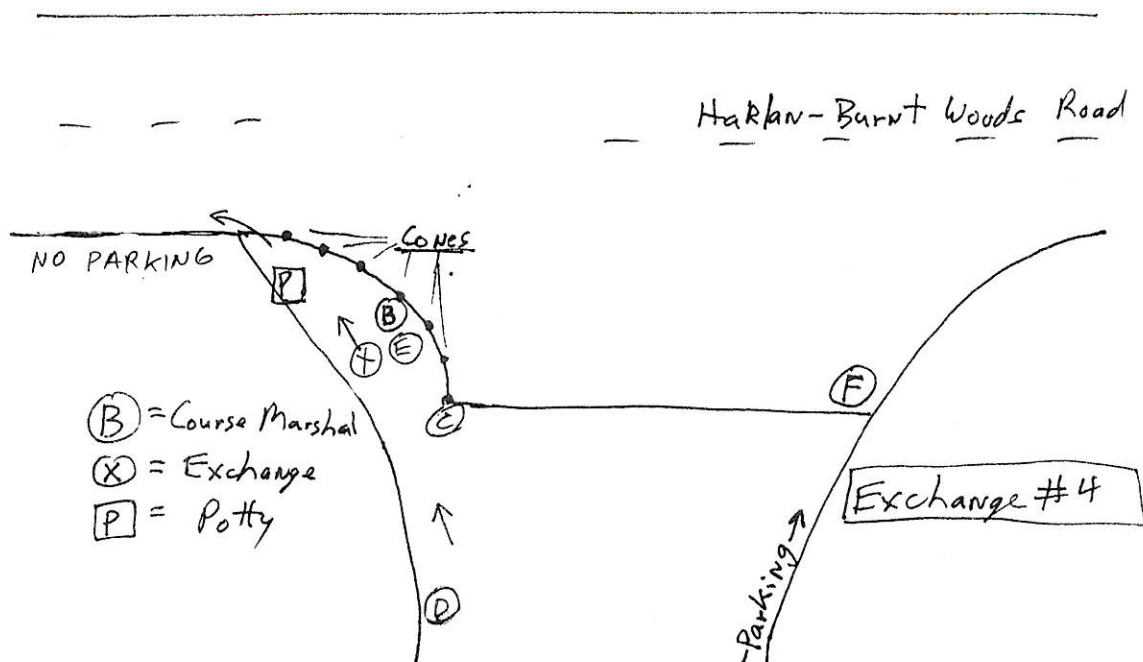 Harlan-Burnt Woods Road
Cones
NO PARKING
P
B
E
X
F
C
B = Course Marshal
X = Exchange
P = Potty
Exchange #4
Parking
D